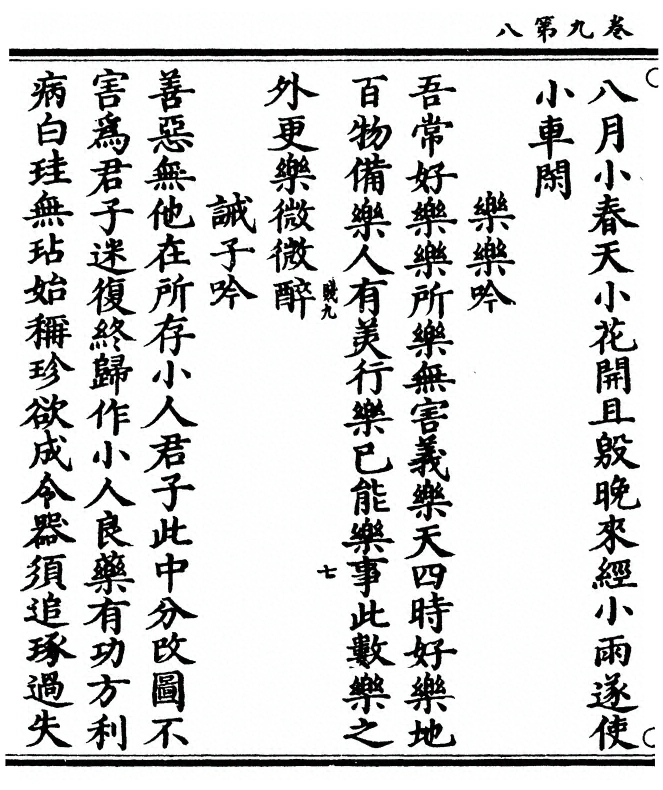 卷九第八
八月小春天小花開且殷晚來經小雨遂使
小車閑
樂樂吟
吾常好樂樂所樂無害義樂天四時好樂地
百物備樂人有美行樂已能樂事此數樂之
外更樂微微醉
賤九
七
誡子吟
善惡無他在所存小人君子此中分改圖不
害爲君子迷復終歸作小人良藥有功方利
病白珪無玷始稱珍欲成令器須追琢過失